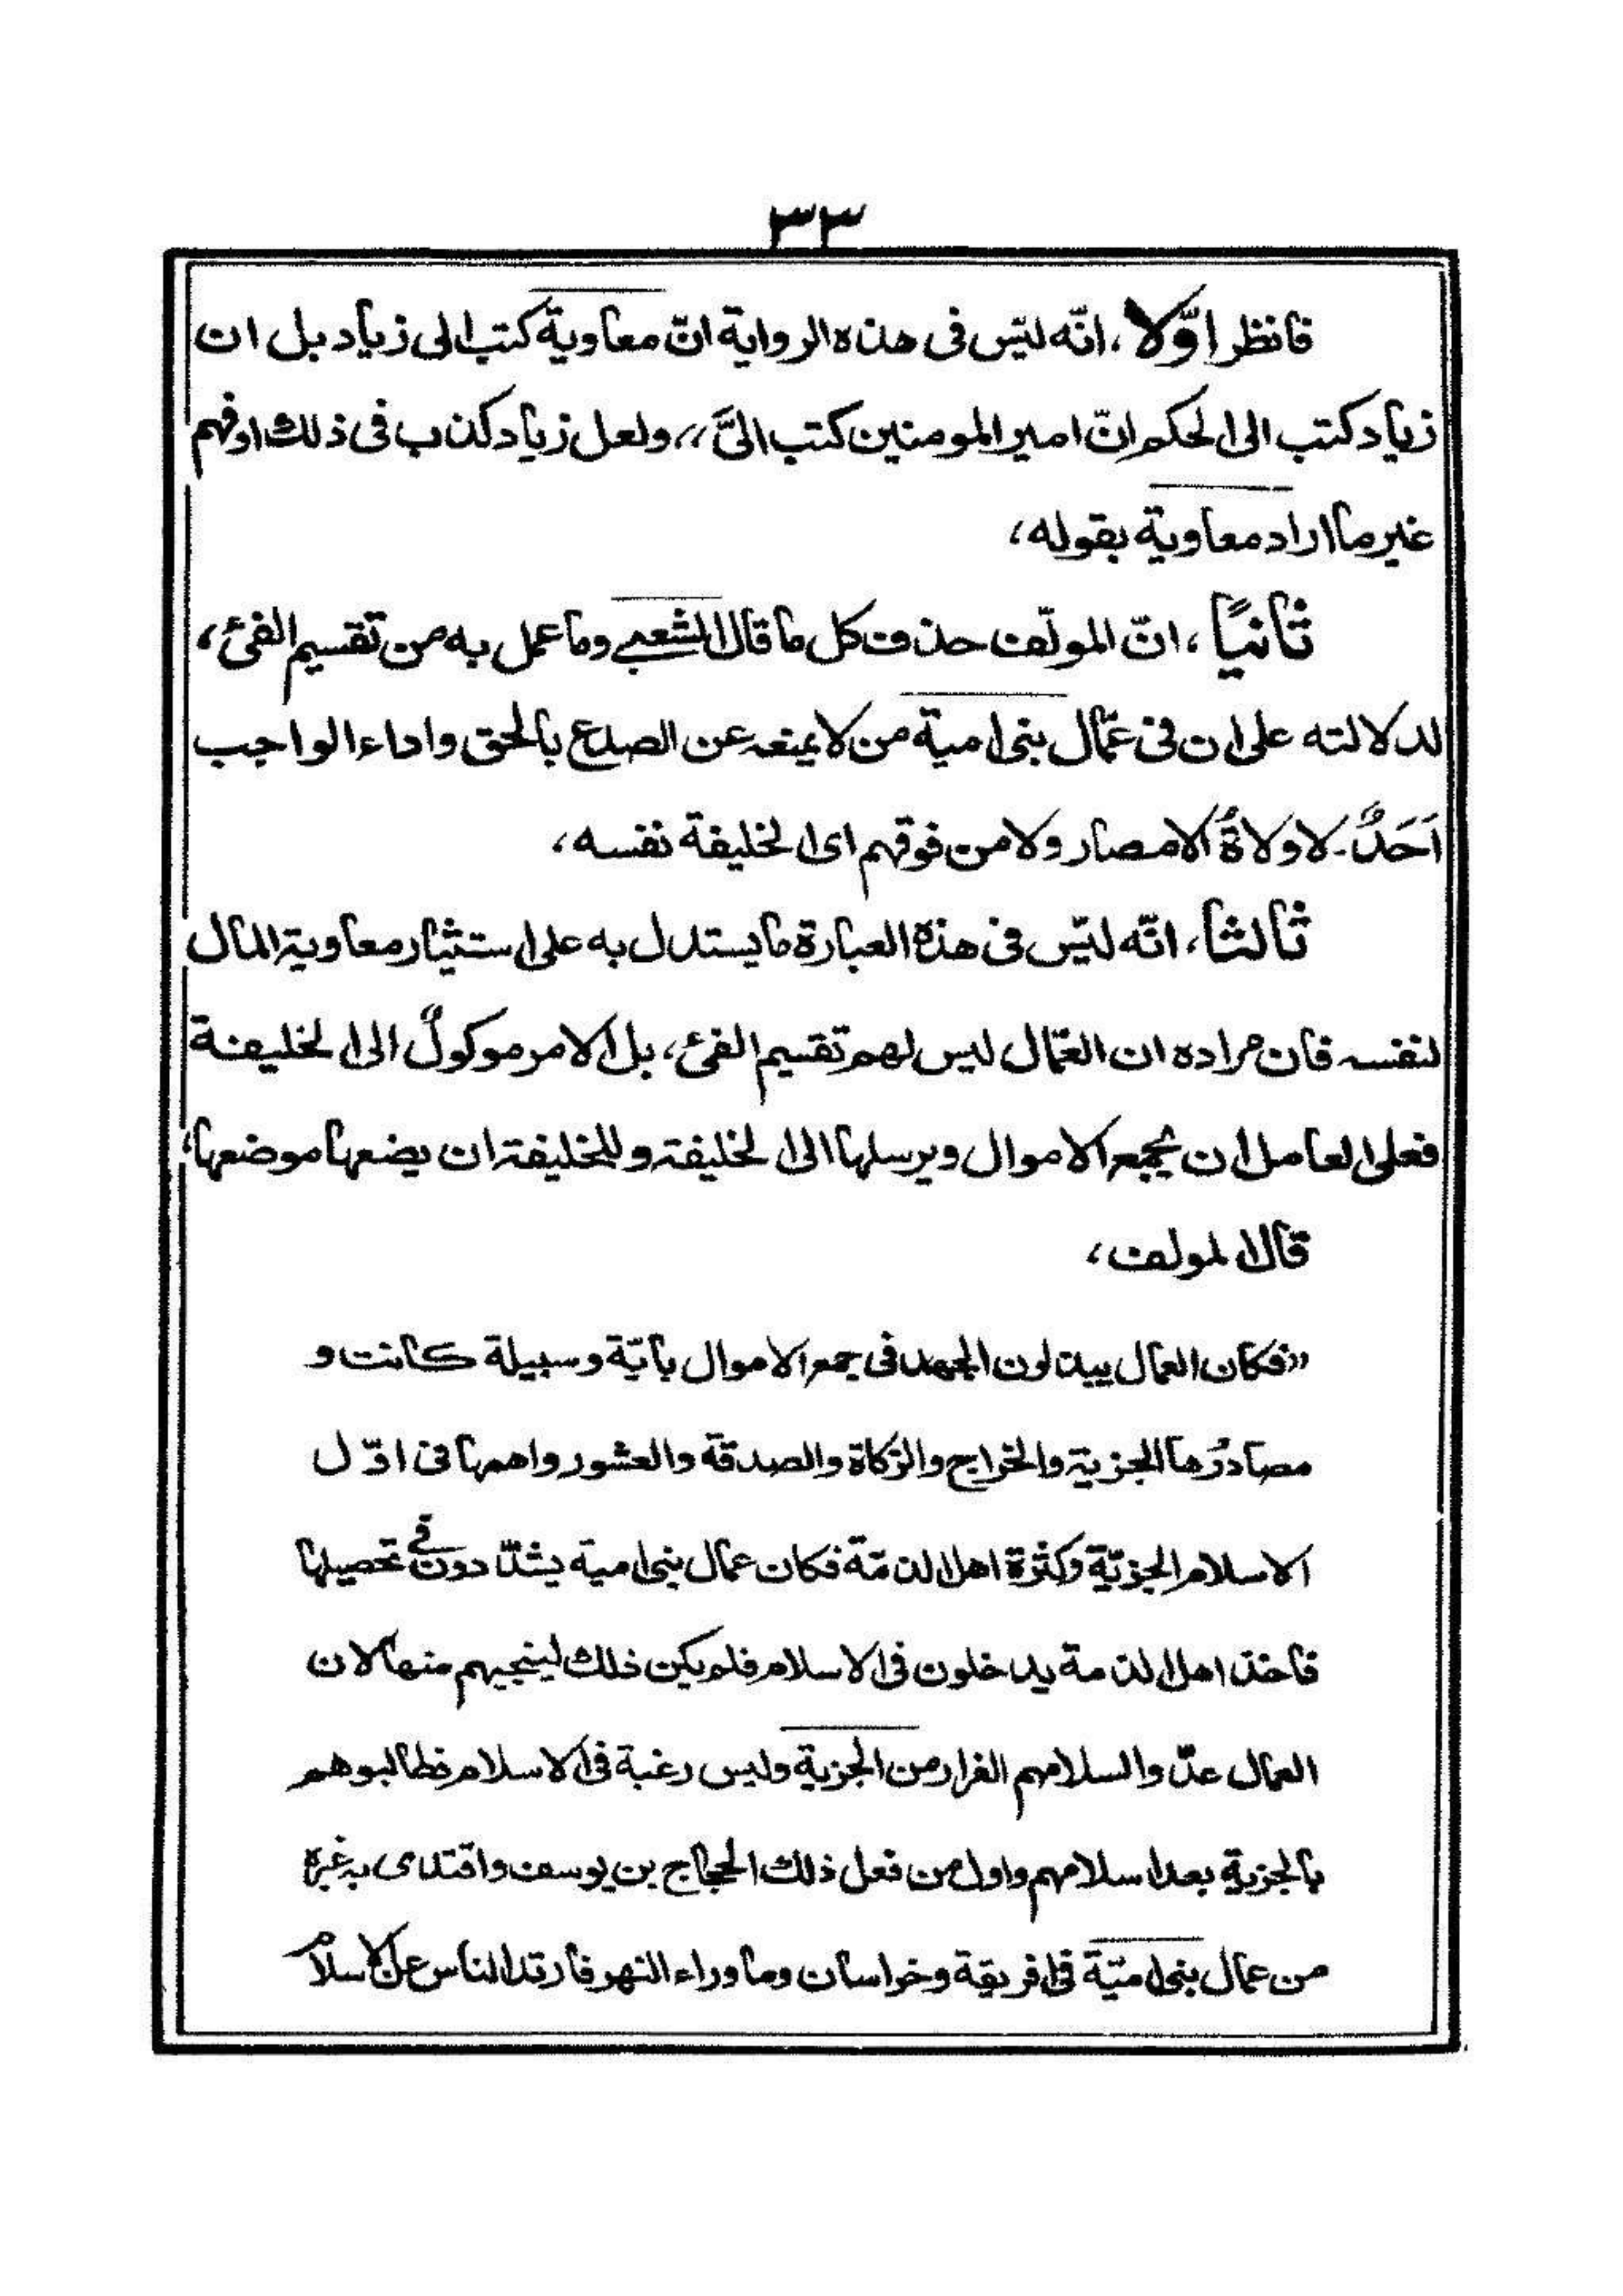 ٣٣
فانظر اوّلا، انّه ليس فى هذه الرواية انّ معاوية كتب الى زياد بل ان
زياد كتب الى الحكم انّ امير المومنين كتب الىَّ،، ولعل زياد كذب فى ذلك اوفهم
غير ما اراد معاوية بقوله،
ثانيًا، انّ المولّف حذف كل ما قال الشعبى وما عمل به من تقسيم الفئ،
لدلالته على ان فى عمّال بنى امية من لا يمنعه عن الصدع بالحق واداء الواجب
اَحَدٌ۔ لا ولاةُ الامصار ولا من فوقهم اى الخليفة نفسه،
ثالثا، انّه ليس فى هذه العبارة ما يستدل به على استئثار معاوية المال
لنفسه فان مراده ان العمّال ليس لهم تقسيم الفئ، بل الامر موكولٌ الى الخليفة
فعلى العامل ان يجمع الاموال ويرسلها الى الخليفة وللخليفة ان يضعها موضعها،
قال المولف،
"فكان العمال يبذلون الجهد فى جمع الاموال بأيّة وسيلة كانت و
مصادرُها الجزية والخراج والزكاة والصدقة والعشور واهمها فى اوّل
الاسلام الجزيّة وكثرة اهل الذمّة فكان عمال بنى امية يشدّدون فى تحصيلها
فاخذ اهل الذمة يدخلون فى الاسلام فلم يكن ذلك لينجيهم منها لان
العمال عدّوا اسلامهم الفرار من الجزية وليس رغبة فى الاسلام فطالبوهم
بالجزية بعد اسلامهم واول من فعل ذلك الحجاج بن يوسف واقتدى به غيره
من عمال بنى اميّة فى افريقة وخراسان وما وراء النهر فارتد الناس عن الاسلام